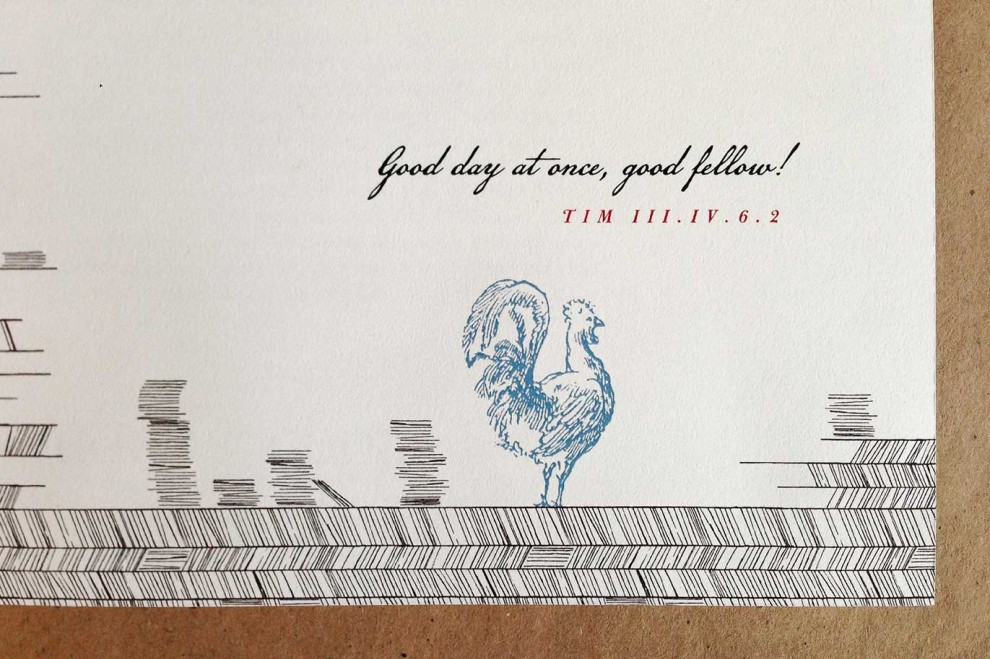 Good day at once, good fellow!
TIM III.IV.6.2